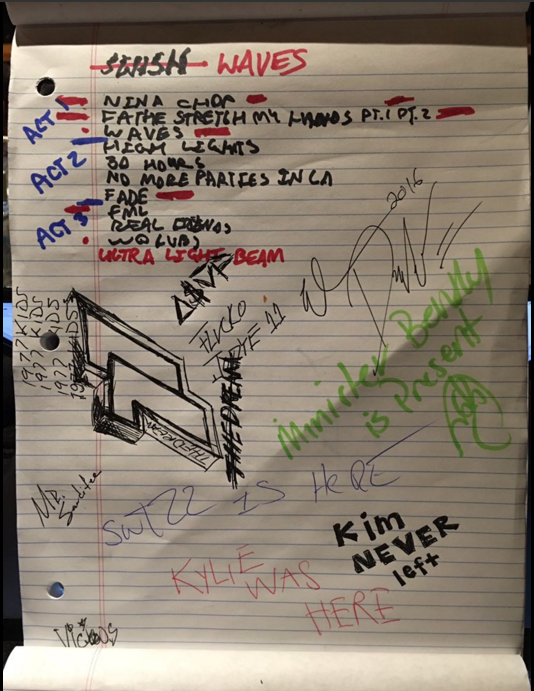 WAVES
ACT 1
NINA CHOP
FATHE STRETCH MY HANDS PT.1 PT.2
WAVES
ACT 2
HIGH LIGHTS
30 HOURS
NO MORE PARTIES IN LA
ACT 3
FADE
FML
REAL
WOLVES
ULTRA LIGHT BEAM
2016
1977 KIDS
1977 KIDS
1977 KIDS
1977 KIDS
THE DREAM
THE DREAM
Minister Bently
is Present
MR.
SWIZZ IS HERE
Kim
NEVER
left
KYLIE
WAS
HERE